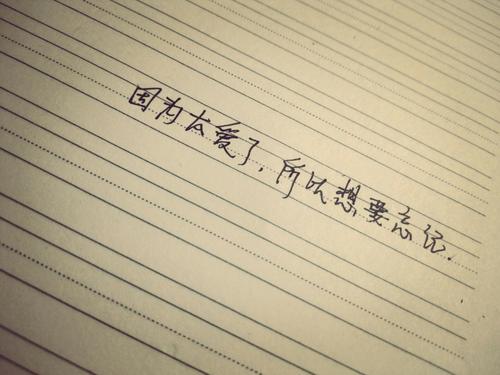 因为太爱了,所以想要忘记.